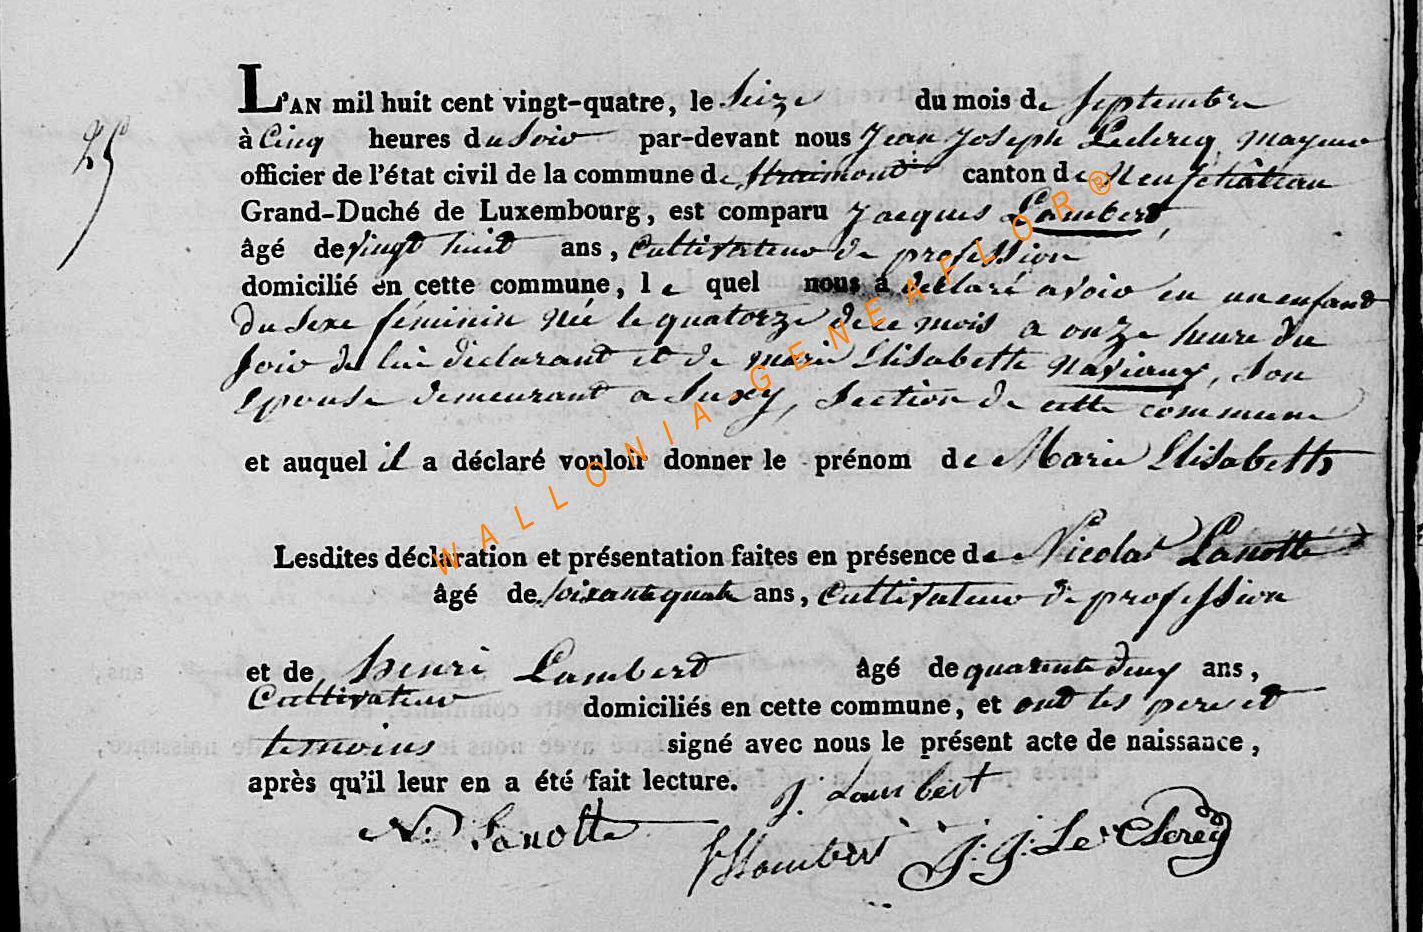 25
L'AN mil huit cent vingt-quatre, le Seize du mois de Septembre
à Cinq heures du Soir par-devant nous Jean Joseph Leclercq, mayeur
officier de l'état civil de la commune de Straimont canton de Neufchâteau
Grand-Duché de Luxembourg, est comparu Jacques Lambert,
âgé de vingt huit ans, Cultivateur de profession
domicilié en cette commune, le quel nous a déclaré avoir eu un enfant
du Sexe féminin née le quatorze de ce mois a onze heure du
Soir de lui déclarant et de marie Elisabette Naviaux, Son
Epouse demeurant a Suxy, Section de cette commune
et auquel il a déclaré vouloir donner le prénom de Marie Elisabette
Lesdites déclaration et présentation faites en présence de Nicolas Lanotte
âgé de soixante quatre ans, Cultivateur de profession
et de henri Lambert âgé de quarante deux ans,
Cultivateur domiciliés en cette commune, et ont les pere et
temoins signé avec nous le présent acte de naissance,
après qu'il leur en a été fait lecture. J. Lambert
N. Lanotte
H Lambert J: J: Le Clercq
WALLONIA-GENEAFLOR®